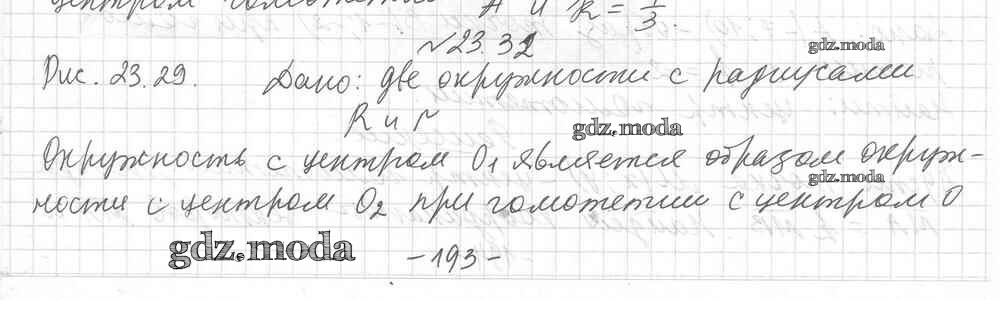 центром гомотетии А и k = 1/3.
№23.32
gdz.moda
Рис. 23.29. Дано: две окружности с радиусами
R и r
gdz.moda
Окружность с центром O₁ является образом окруж-
gdz.moda
ности с центром O₂ при гомотетии с центром O
gdz.moda
-193-